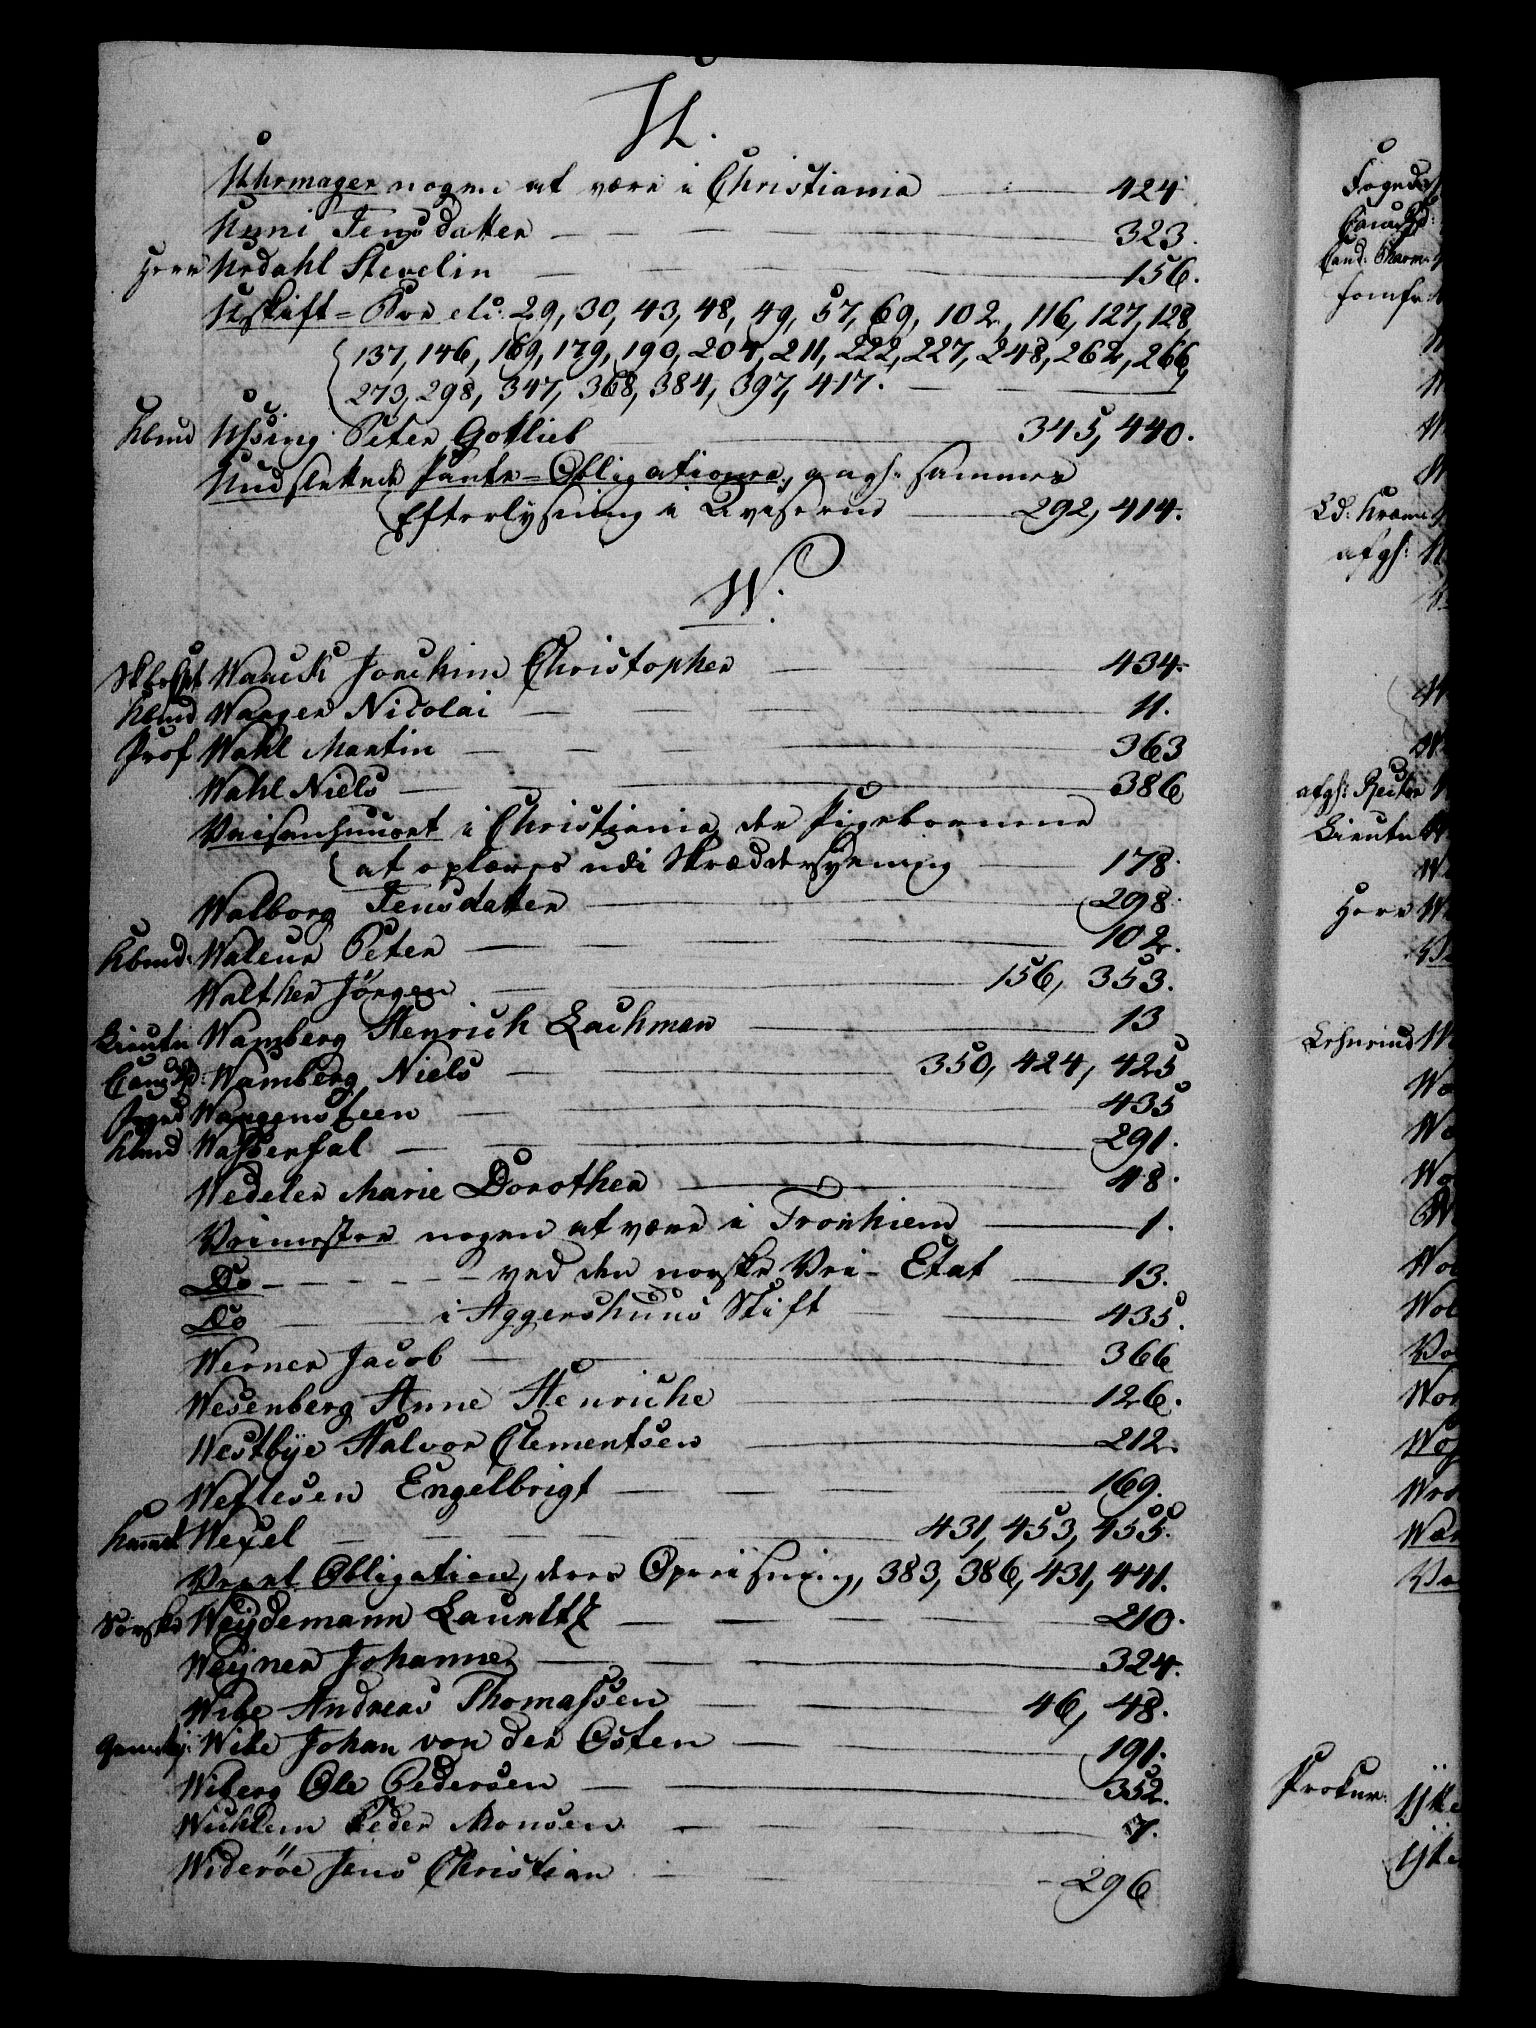 U.
Uhrmager nogen at være i Christiania 424
Uuni Jensdatter 323.
Herr Urdahl Stevelin 156.
Uskift= Boe etc: 29, 30, 43, 48, 49, 57, 69, 102, 116, 127, 128,
137, 146, 169, 179, 190, 204, 211, 222, 227, 248, 262, 266,
273, 298, 347, 368, 384, 397, 417.
Kbmd Ussing Peter Gotlieb 345, 440.
Uudslettede Pante=Obligationer, sammes
Efterlysning i Aviserne 292, 414.
W.
Waack Joachim Christopher 434.
Kbmd Waager Nicolai 11.
Prof Wahl Martin 363
Wahl Niels 386
Vaisenhuuset i Christiania, der Pigebørnene
at oplæres udi Skræddersyening 178.
Walborg Jensdatter 298.
Kbmd: Waleur Peter 102.
Walther Jörgen 156, 353.
Lieutn Wamberg Henrich Lachman 13
Wamberg Niels 350, 424, 425
Foged Wangensteen 435
Kbmd Wasserfal 291.
Wedeler Marie Dorothea 48.
Veimester nogen at være i Tronhiem 1.
Do ved den norske Vei-Etat 13.
Do i Aggershuus Stift 435.
Werner Jacob 366
Wesenberg Anne Henriche 126.
Westbÿe Halvor Clementsen 212.
Wetlesen Engelbrigt 169.
Wexel 431, 453, 455.
Obligation, deres Opviisning, 383, 386, 431, 441.
Weÿdemann Lauritz 210.
Weÿner Johanne 324.
Wibe Andreas Thomassen 46, 48.
Wibe Johan von der Osten 191.
Wiberg Ole Pedersen 352.
Peder Monsen 7.
Wideröe Jens Christian 296
Foged
Cand: Pharm:
Jomfr:
afgh:
afgh: Rector
Lieutn
Herr W
W
Wo
Wo
Wo
Wol
Wol
Prokur: ÿke